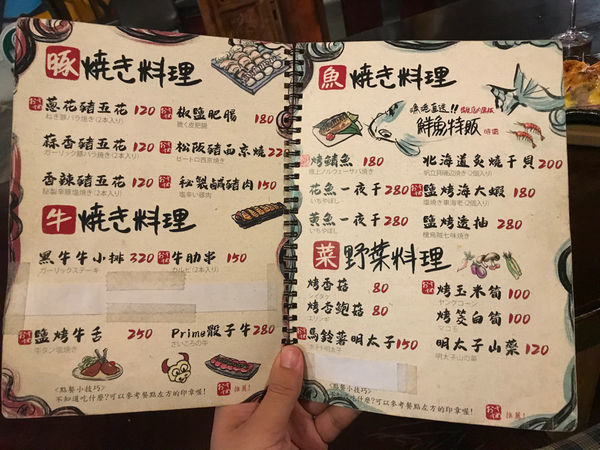 豚 焼き料理
葱花豬五花 120
ねぎ豚バラ焼き(2本入り)
椒鹽肥腸 180
蒜香豬五花 120
ガーリック豚バラ焼き(2本入り)
松阪豬西京燒 220
香辣豬五花 120
秘製鹹豬肉 150
塩辛い豚肉
牛 焼き料理
黑牛牛小排 320
ガーリックステーキ
牛肋串 150
カルビ(2本入り)
鹽烤牛舌 250
牛タン塩焼き
Prime骰子牛 280
さいころの牛
<點餐小技巧>
不知道吃什麼?可以參考餐點左方的印章喔!
推薦!
魚 焼き料理
漁港直送!!
鮮魚特販
烤鯖魚 180
北海道炙燒干貝 200
花魚一夜干 280
いちやぼし
鹽烤海大蝦 180
黄魚一夜干 280
いちやぼし
鹽烤透抽 280
菜 野菜料理
烤香菇 80
シイタケ
烤玉米筍 100
ヤングコーン
烤杏鮑菇 80
エリンギ
烤茭白筍 100
マコモ
馬鈴薯明太子 150
ポテト明太子
明太子山藥 120
明太子山の薬
<點餐小技巧>
不知道吃什麼?可以參考餐點左方的印章喔!
推薦!